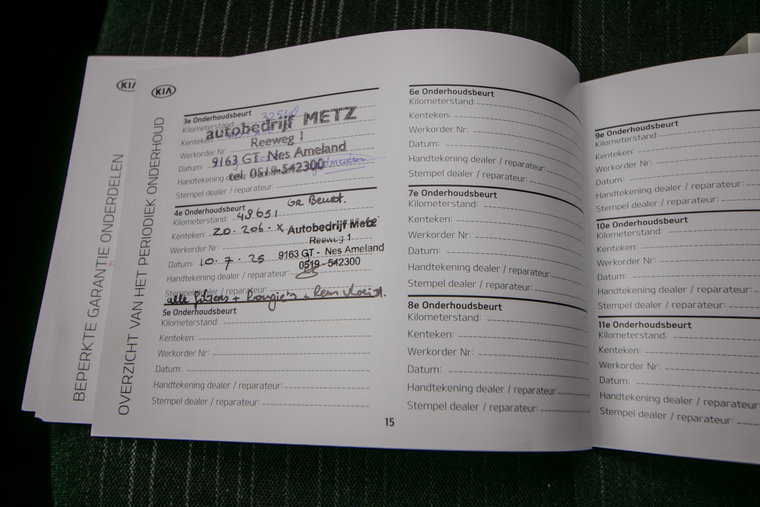 KIA
BEPERKTE GARANTIE ONDERDELEN
KIA
OVERZICHT VAN HET PERIODIEK ONDERHOUD
3e Onderhoudsbeurt
Kilometerstand:
autobedrijf METZ
Kenteken:
Reeweg 1
Werkorder Nr:
9163 GT - Nes Ameland
Datum:
tel. 0519-542300
Handtekening dealer / reparateur:
Stempel dealer / reparateur:
Gr. Beurt.
4e Onderhoudsbeurt
Kilometerstand: 48651
Kenteken: 20.206.X
Autobedrijf Metz
Werkorder Nr:
Reeweg 1
9163 GT - Nes Ameland
Datum: 10.7.25
0519 - 542300
Handtekening dealer / reparateur:
Stempel dealer / reparateur:
alle filters + bougie's + Rem vloeist.
5e Onderhoudsbeurt
Kilometerstand:
Kenteken:
Werkorder Nr:
Datum:
Handtekening dealer / reparateur:
Stempel dealer / reparateur:
6e Onderhoudsbeurt
Kilometerstand:
Kenteken:
Werkorder Nr:
Datum:
Handtekening dealer / reparateur:
Stempel dealer / reparateur:
7e Onderhoudsbeurt
Kilometerstand:
Kenteken:
Werkorder Nr:
Datum:
Handtekening dealer / reparateur:
Stempel dealer / reparateur:
8e Onderhoudsbeurt
Kilometerstand:
Kenteken:
Werkorder Nr:
Datum:
Handtekening dealer / reparateur:
Stempel dealer / reparateur:
15
9e Onderhoudsbeurt
Kilometerstand:
Kenteken:
Werkorder Nr:
Datum:
Handtekening dealer / reparateur:
Stempel dealer / reparateur:
10e Onderhoudsbeurt
Kilometerstand:
Kenteken:
Werkorder Nr:
Datum:
Handtekening dealer / reparateur:
Stempel dealer / reparateur:
11e Onderhoudsbeurt
Kilometerstand:
Kenteken:
Werkorder Nr:
Datum:
Handtekening dealer / reparateur:
Stempel dealer / reparateur: